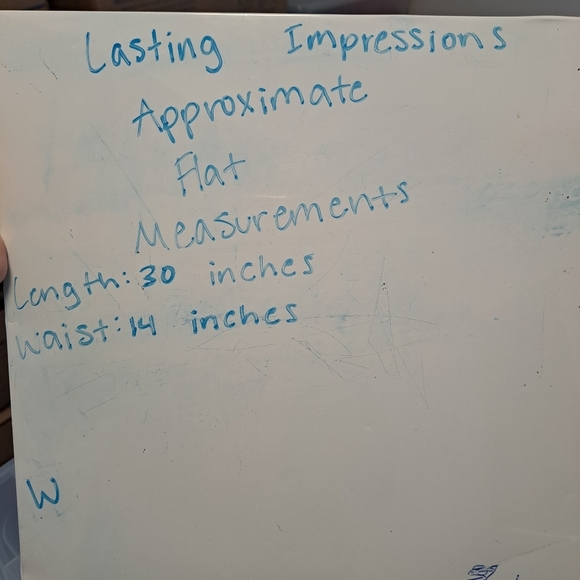 Lasting Impressions
Approximate
Flat
Measurements
Length: 30 inches
Waist: 14 inches
W